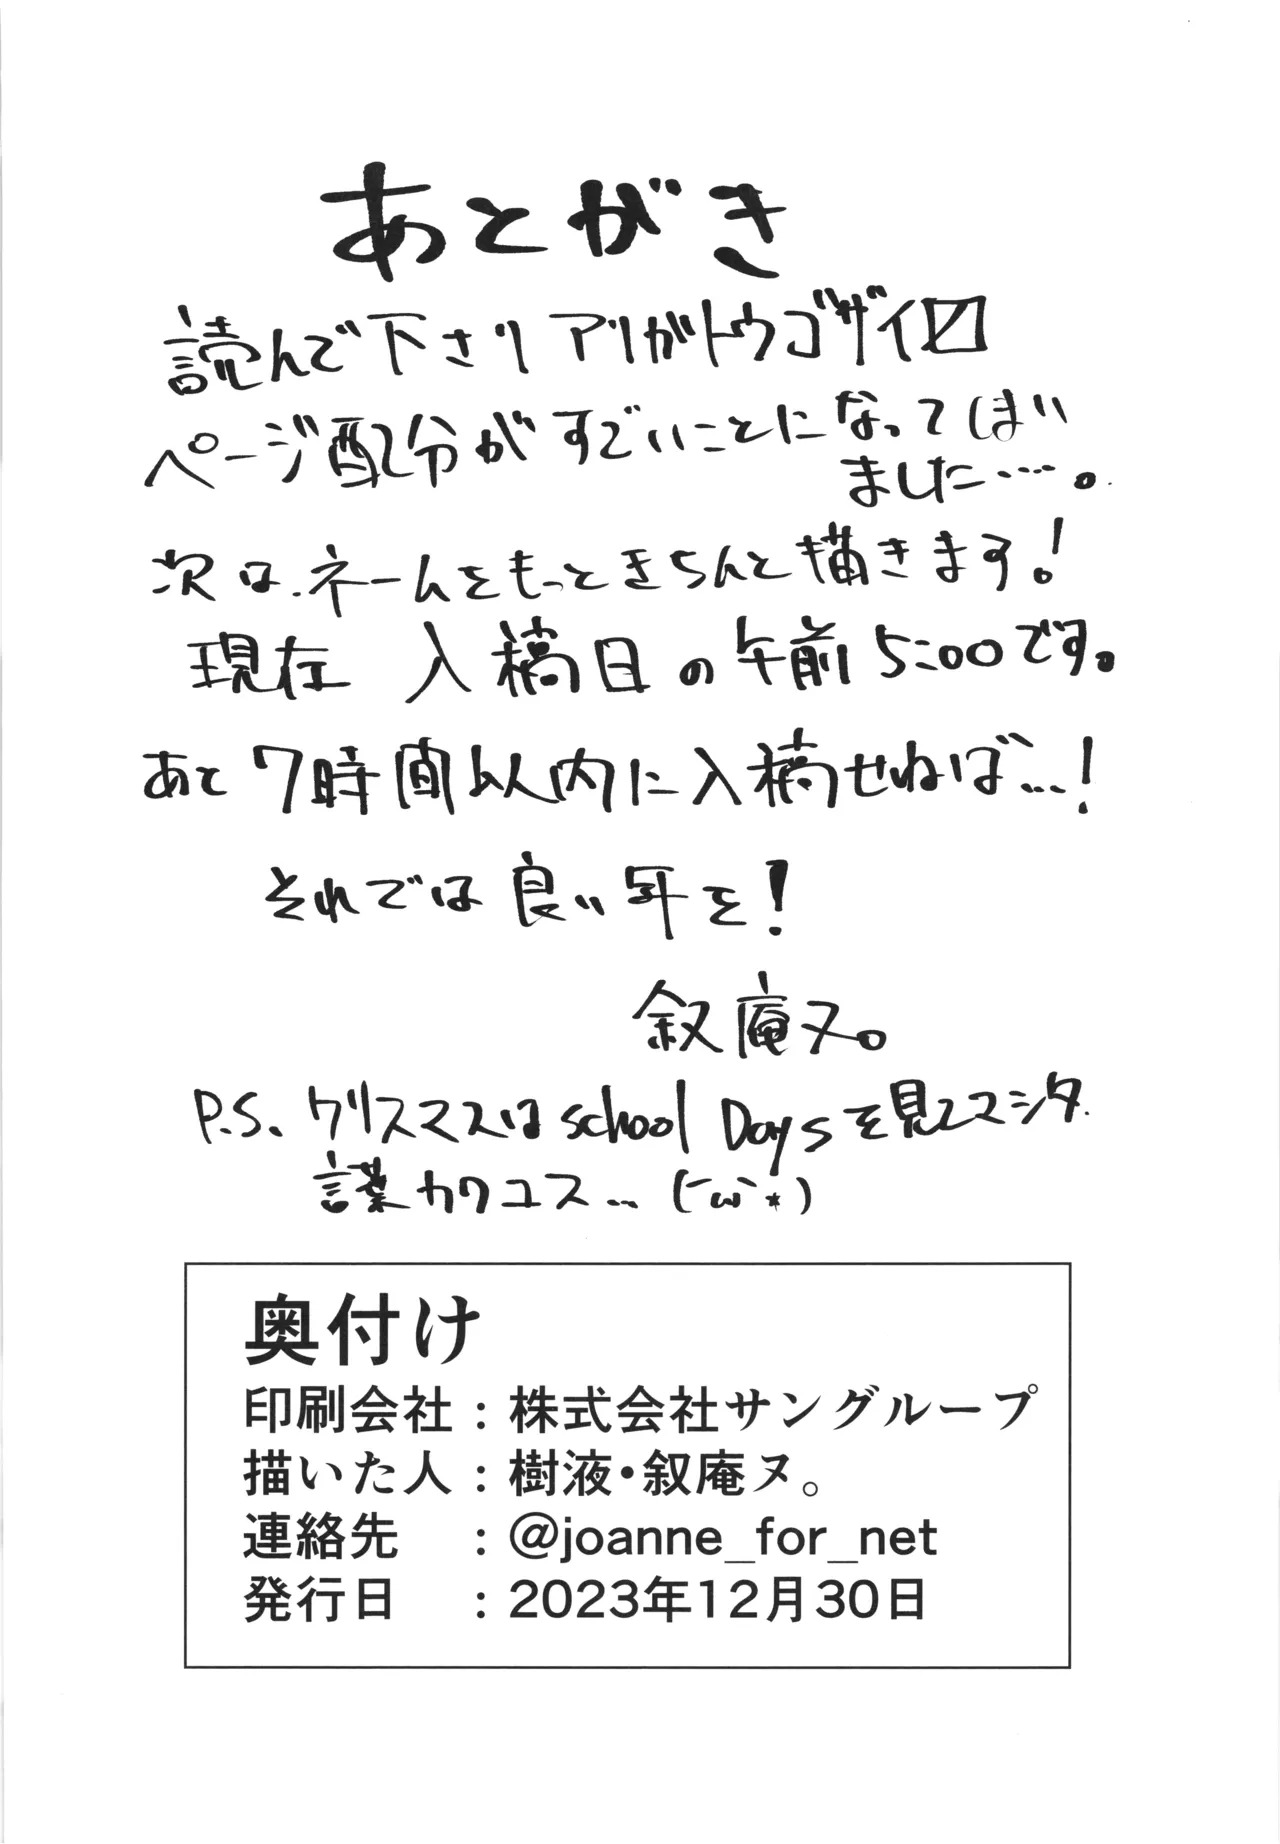 あとがき
読んで下さりアリガトウゴザイ〼
ページ配分がすごいことになってしまい
ました……。
次は、ネームをもっときちんと描きます!
現在 入稿日の午前5:00です。
あと7時間以内に入稿せねば…!
それでは良い年を!
叙庵ヌ。
P.S. クリスマスはschool Daysを見てマシタ.
言葉カワユス… (´ω`*)
奥付け
印刷会社:株式会社サングループ
描いた人:樹液・叙庵ヌ。
連絡先 :@joanne_for_net
発行日 :2023年12月30日